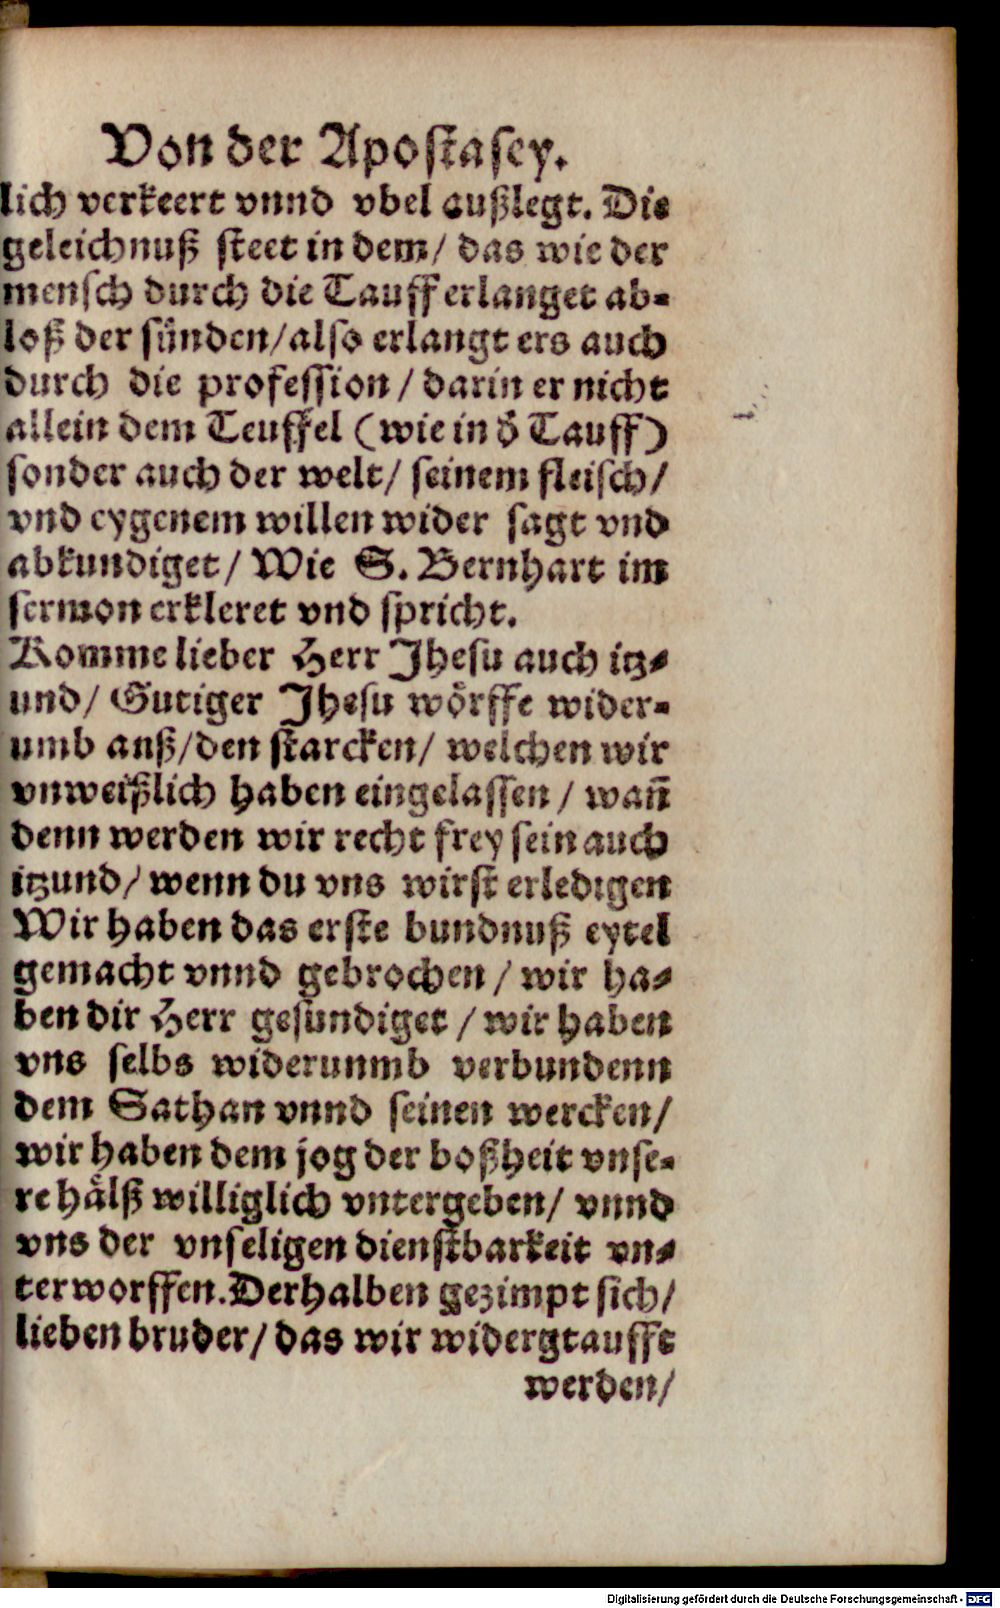 Von der Apostasey.
lich verkeert vnnd vbel außlegt. Die
geleichnuß steet in dem/ das wie der
mensch durch die Tauff erlanget ab-
loß der sünden/also erlangt ers auch
durch die profession / darin er nicht
allein dem Teuffel (wie in d̕ Tauff)
sonder auch der welt/ seinem fleisch/
vnd eygenem willen wider sagt vnd
abkundiget / Wie S. Bernhart im
sermon erkleret vnd spricht.
Komme lieber Herr Jhesu auch itz-
und/ Gutiger Jhesu wörffe wider-
umb anß/den starcken/ welchen wir
vnweißlich haben eingelassen / wañ
denn werden wir recht frey sein auch
itzund/ wenn du vns wirst erledigen
Wir haben das erste bundnuß eytel
gemacht vnnd gebrochen / wir ha-
ben dir Herr gesundiget / wir haben
vns selbs widerunmb verbundenn
dem Sathan vnnd seinen wercken/
wir haben dem jog der boßheit vnse-
re hälß williglich vntergeben/ vnnd
vns der vnseligen dienstbarkeit vn-
terworffen. Derhalben gezimpt sich/
lieben bruder/ das wir widergtaufft
werden/
Digitalisierung gefördert durch die Deutsche Forschungsgemeinschaft - DFG